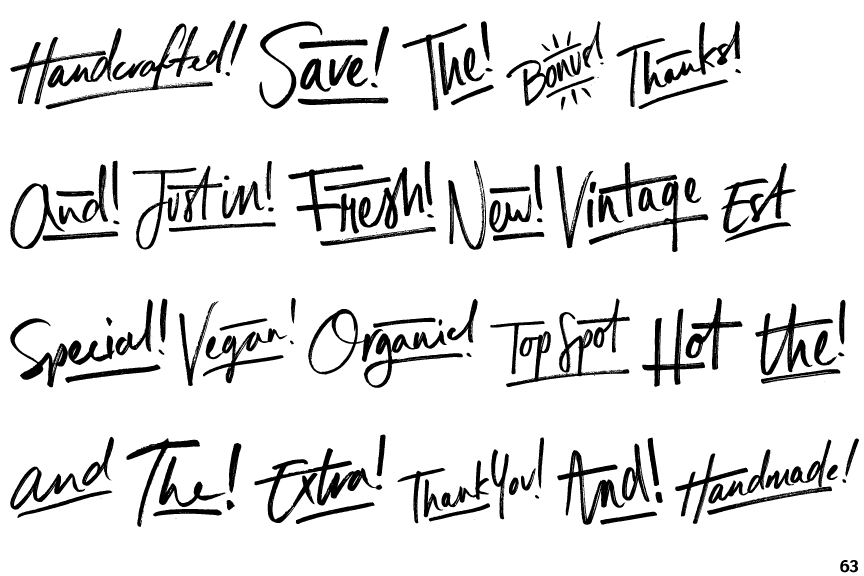 Handcrafted! Save! The! Bonus! Thanks!
And! Just in! Fresh! New! Vintage Est
Special! Vegan! Organic! Top Spot Hot the!
and The! Extra! Thank You! And! Handmade!
63